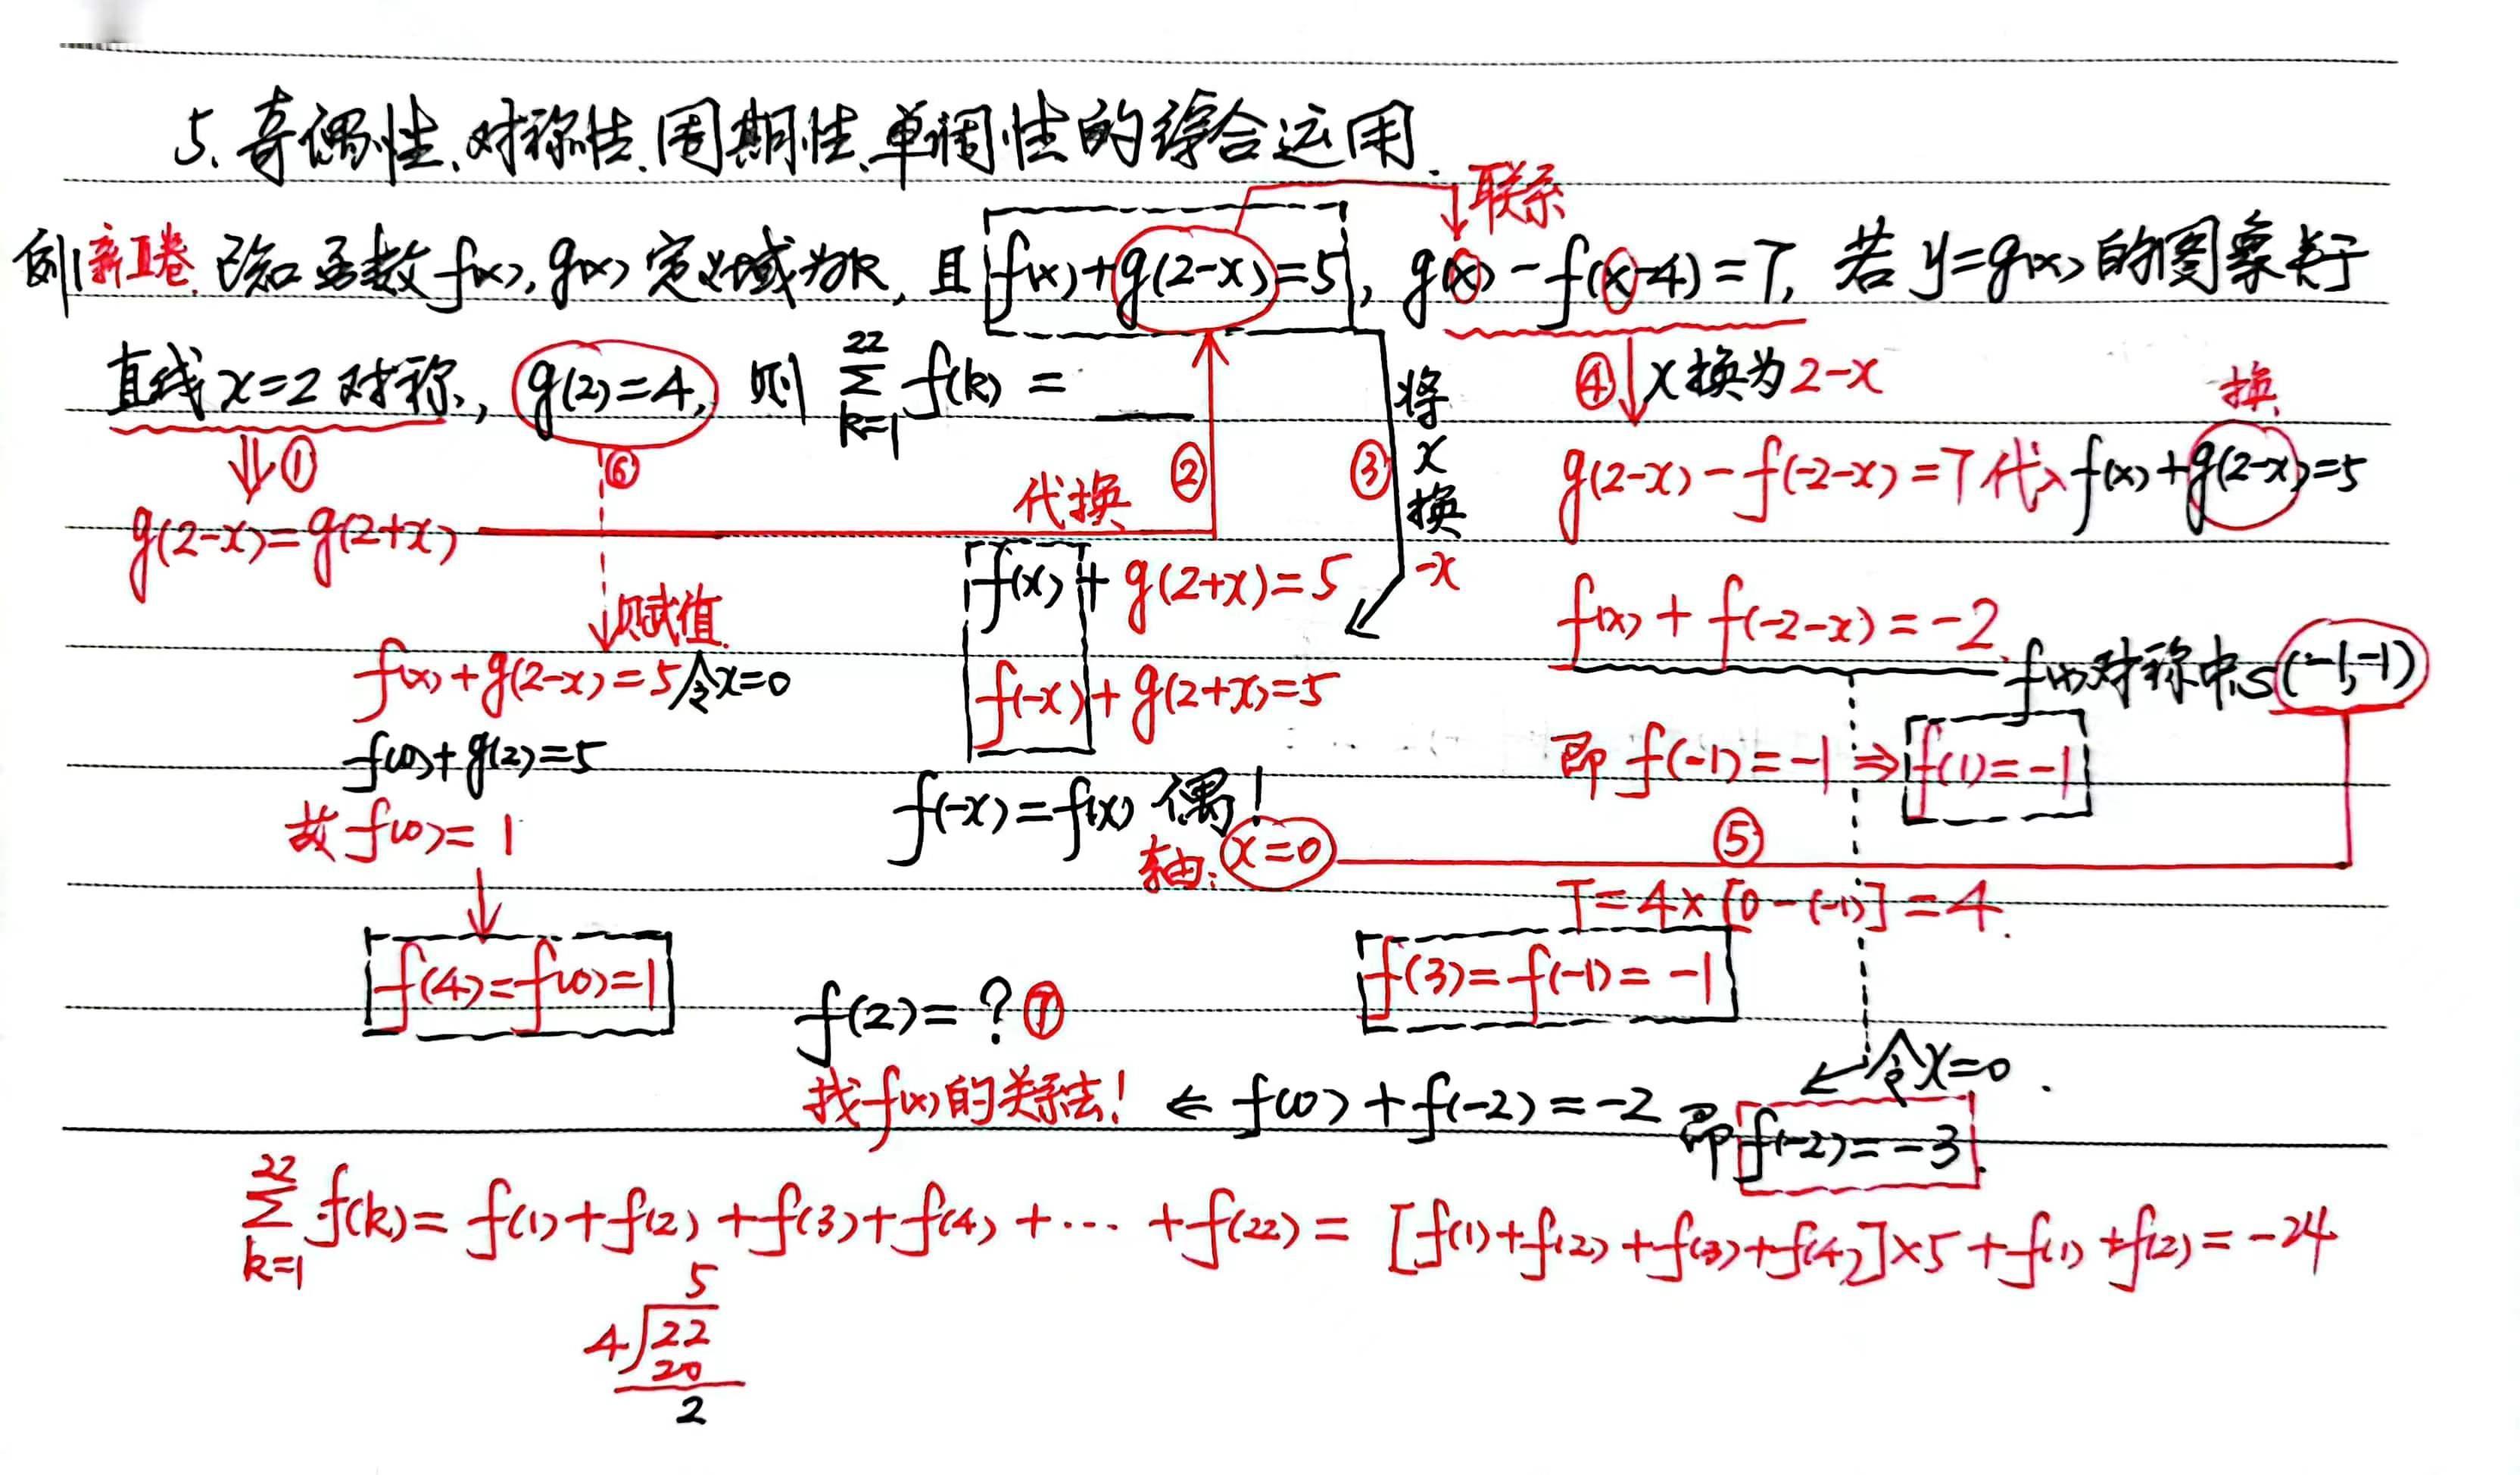 5. 奇偶性、对称性、周期性、单调性的综合运用.
联系
例1 新Ⅱ卷. 已知函数f(x), g(x)定义域为R, 且f(x)+g(2-x)=5, g(x)-f(x-4)=7, 若y=g(x)的图象关于
直线x=2对称, g(2)=4, 则 \sum_{k=1}^{22} f(k) = ___
① g(2-x)=g(2+x)
② 代换
f(x)+g(2+x)=5
③ 将x换-x
f(-x)+g(2+x)=5
f(-x)=f(x) 偶!
轴: x=0
④ x换为2-x
换
g(2-x)-f(-2-x)=7代入f(x)+g(2-x)=5
f(x)+f(-2-x)=-2.
f(x)对称中心(-1,-1)
即 f(-1)=-1 ⇒ f(1)=-1
⑤
T=4×[0-(-1)]=4.
f(3)=f(-1)=-1
⑥
赋值
f(x)+g(2-x)=5令x=0
f(0)+g(2)=5
故f(0)=1
f(4)=f(0)=1
f(2)=? ⑦
令x=0.
找f(x)的关系去! ← f(0)+f(-2)=-2 即 f(-2)=-3.
\sum_{k=1}^{22} f(k)=f(1)+f(2)+f(3)+f(4)+⋯+f(22)=[f(1)+f(2)+f(3)+f(4)]×5+f(1)+f(2)=-24
5
4 22
20
2